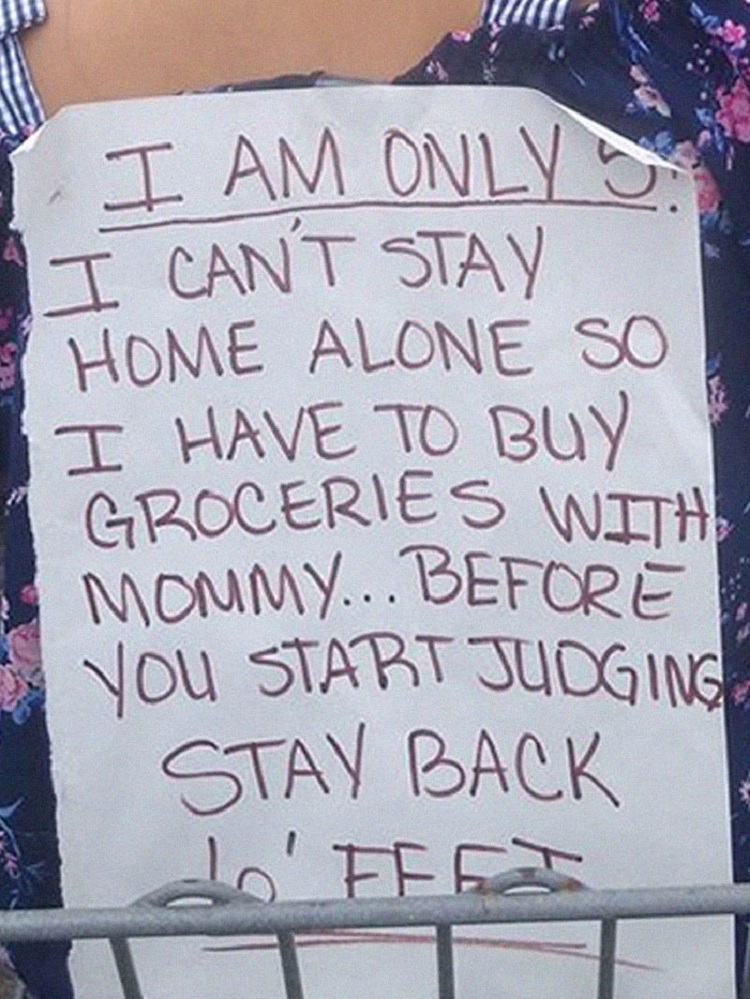 I AM ONLY 5.
I CAN'T STAY
HOME ALONE SO
I HAVE TO BUY
GROCERIES WITH
MOMMY... BEFORE
YOU START JUDGING
STAY BACK
FEET